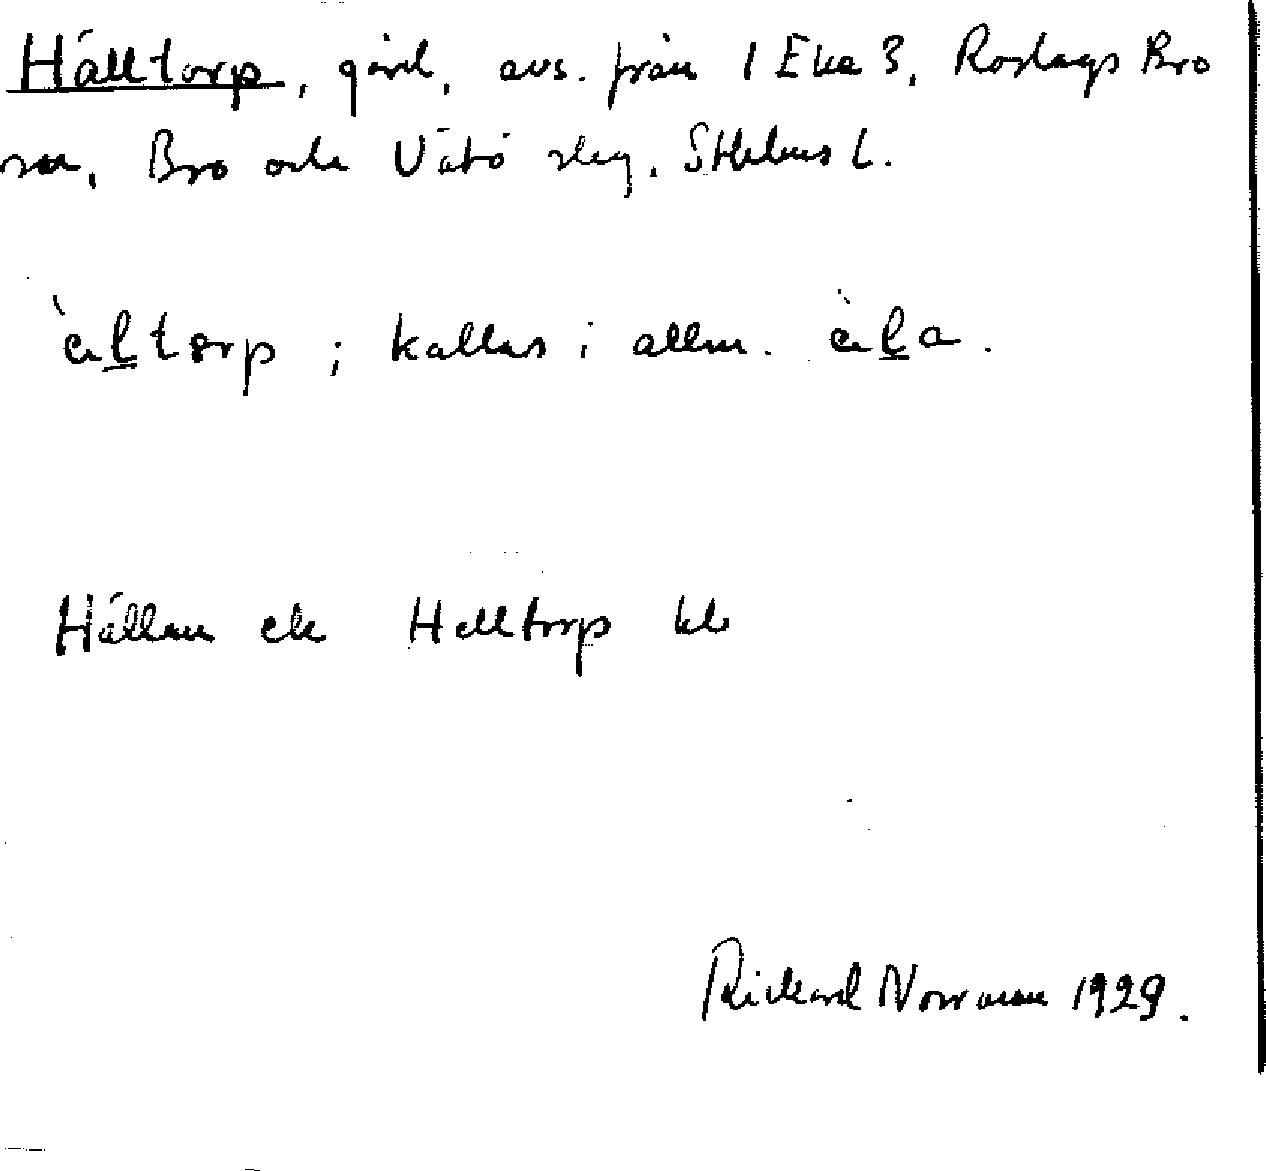 Hälltorp, gård, avs. från 1 Eka 3, Roslags Bro
sn, Bro och Vätö slg, Sthlms l.
kallas i allm.
Hällan ek Helltorp kb
Rickard Norrman 1929.